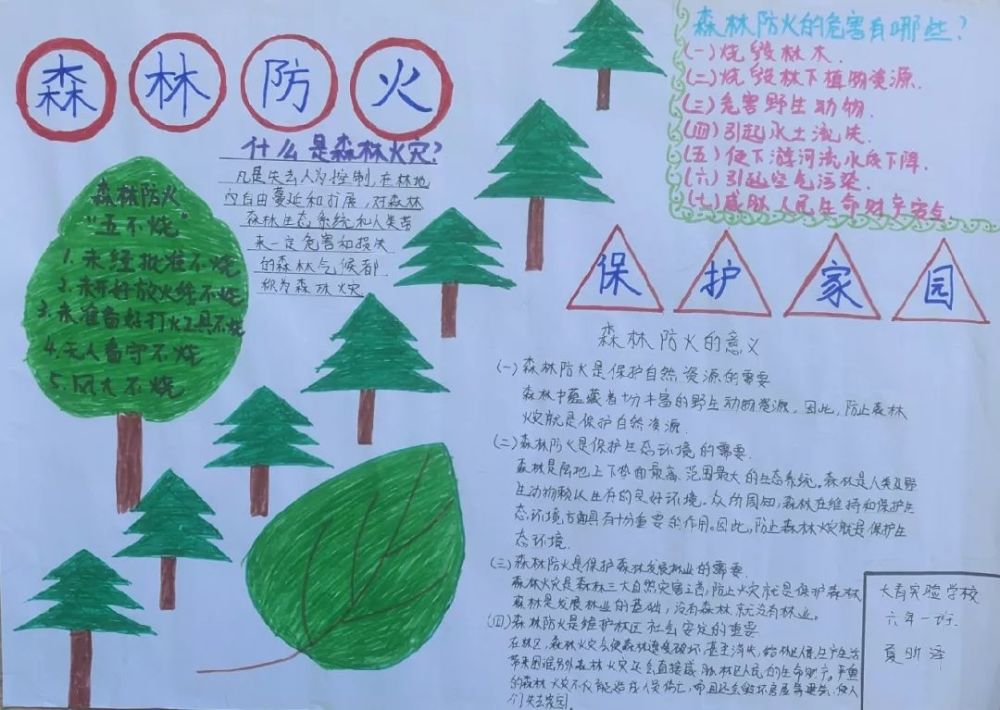 森林防火
什么是森林火灾?
凡是失去人为控制,在林地
内自由蔓延和扩展,对森林
森林生态系统和人类带
来一定危害和损失
的森林气候都
称为森林火灾
森林防火
"五不烧"
1.未经批准不烧
2.未开好放火线不烧
3.未准备好打火工具不烧
4.无人看守不烧
5.风大不烧
森林防火的危害有哪些?
(一)烧毁林木.
(二)烧毁林下植物资源.
(三)危害野生动物.
(四)引起水土流失.
(五)使下游河流水质下降.
(六)引起空气污染.
(七)威胁人民生命财产安全.
保护家园
森林防火的意义
(一)森林防火是保护自然资源的需要
森林中蕴藏着十分丰富的野生动植物资源,因此,防止森林
火灾就是保护自然资源.
(二)森林防火是保护生态环境的需要.
森林是陆地上下势面最高、范围最大的生态系统。森林是人类及野
生动物赖以生存的良好环境。众所周知,森林在维持和保护生
态环境方面具有十分重要的作用。因此,防止森林火灾就是保护生
态环境.
(三)森林防火是保护森林发展林业的需要.
森林火灾是森林三大自然灾害之首,防止火灾就是保护森林
森林是发展林业的基础,没有森林就没有林业。
(四)森林防火是维护林区社会安定的重要
在林区,森林火灾会使森林遭受破坏,甚至消失,给林区人民生产生活
带来困难另外森林火灾还会直接威胁林区人民的生命财产。严重
的森林火灾不仅能造成人员伤亡,而且还会毁坏房屋等建筑,使人
们失去家园。
实验学校
六年一班